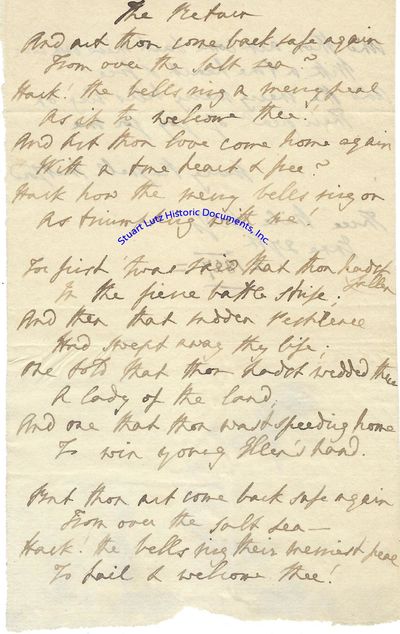 The Return
And art thou come back safe again
From over the salt sea?
Hark! the bells ring a merry peal
As if to welcome thee!
And art thou love come home again
With a true heart & free?
Hark how the merry bells ring on
As triumphing with me!
Stuart Lutz Historic Documents, Inc.
For first 'twas said that thou hadst
fallen
In the fierce battle strife;
And then that sudden Pestilence
Had swept away thy life;
One told that thou hadst wedded there
A lady of the land
And one that thou wast speeding home
To win young Ellen's hand.
But thou art come back safe again
From over the salt sea—
Hark! the bells ring their merriest peal
To hail & welcome thee!